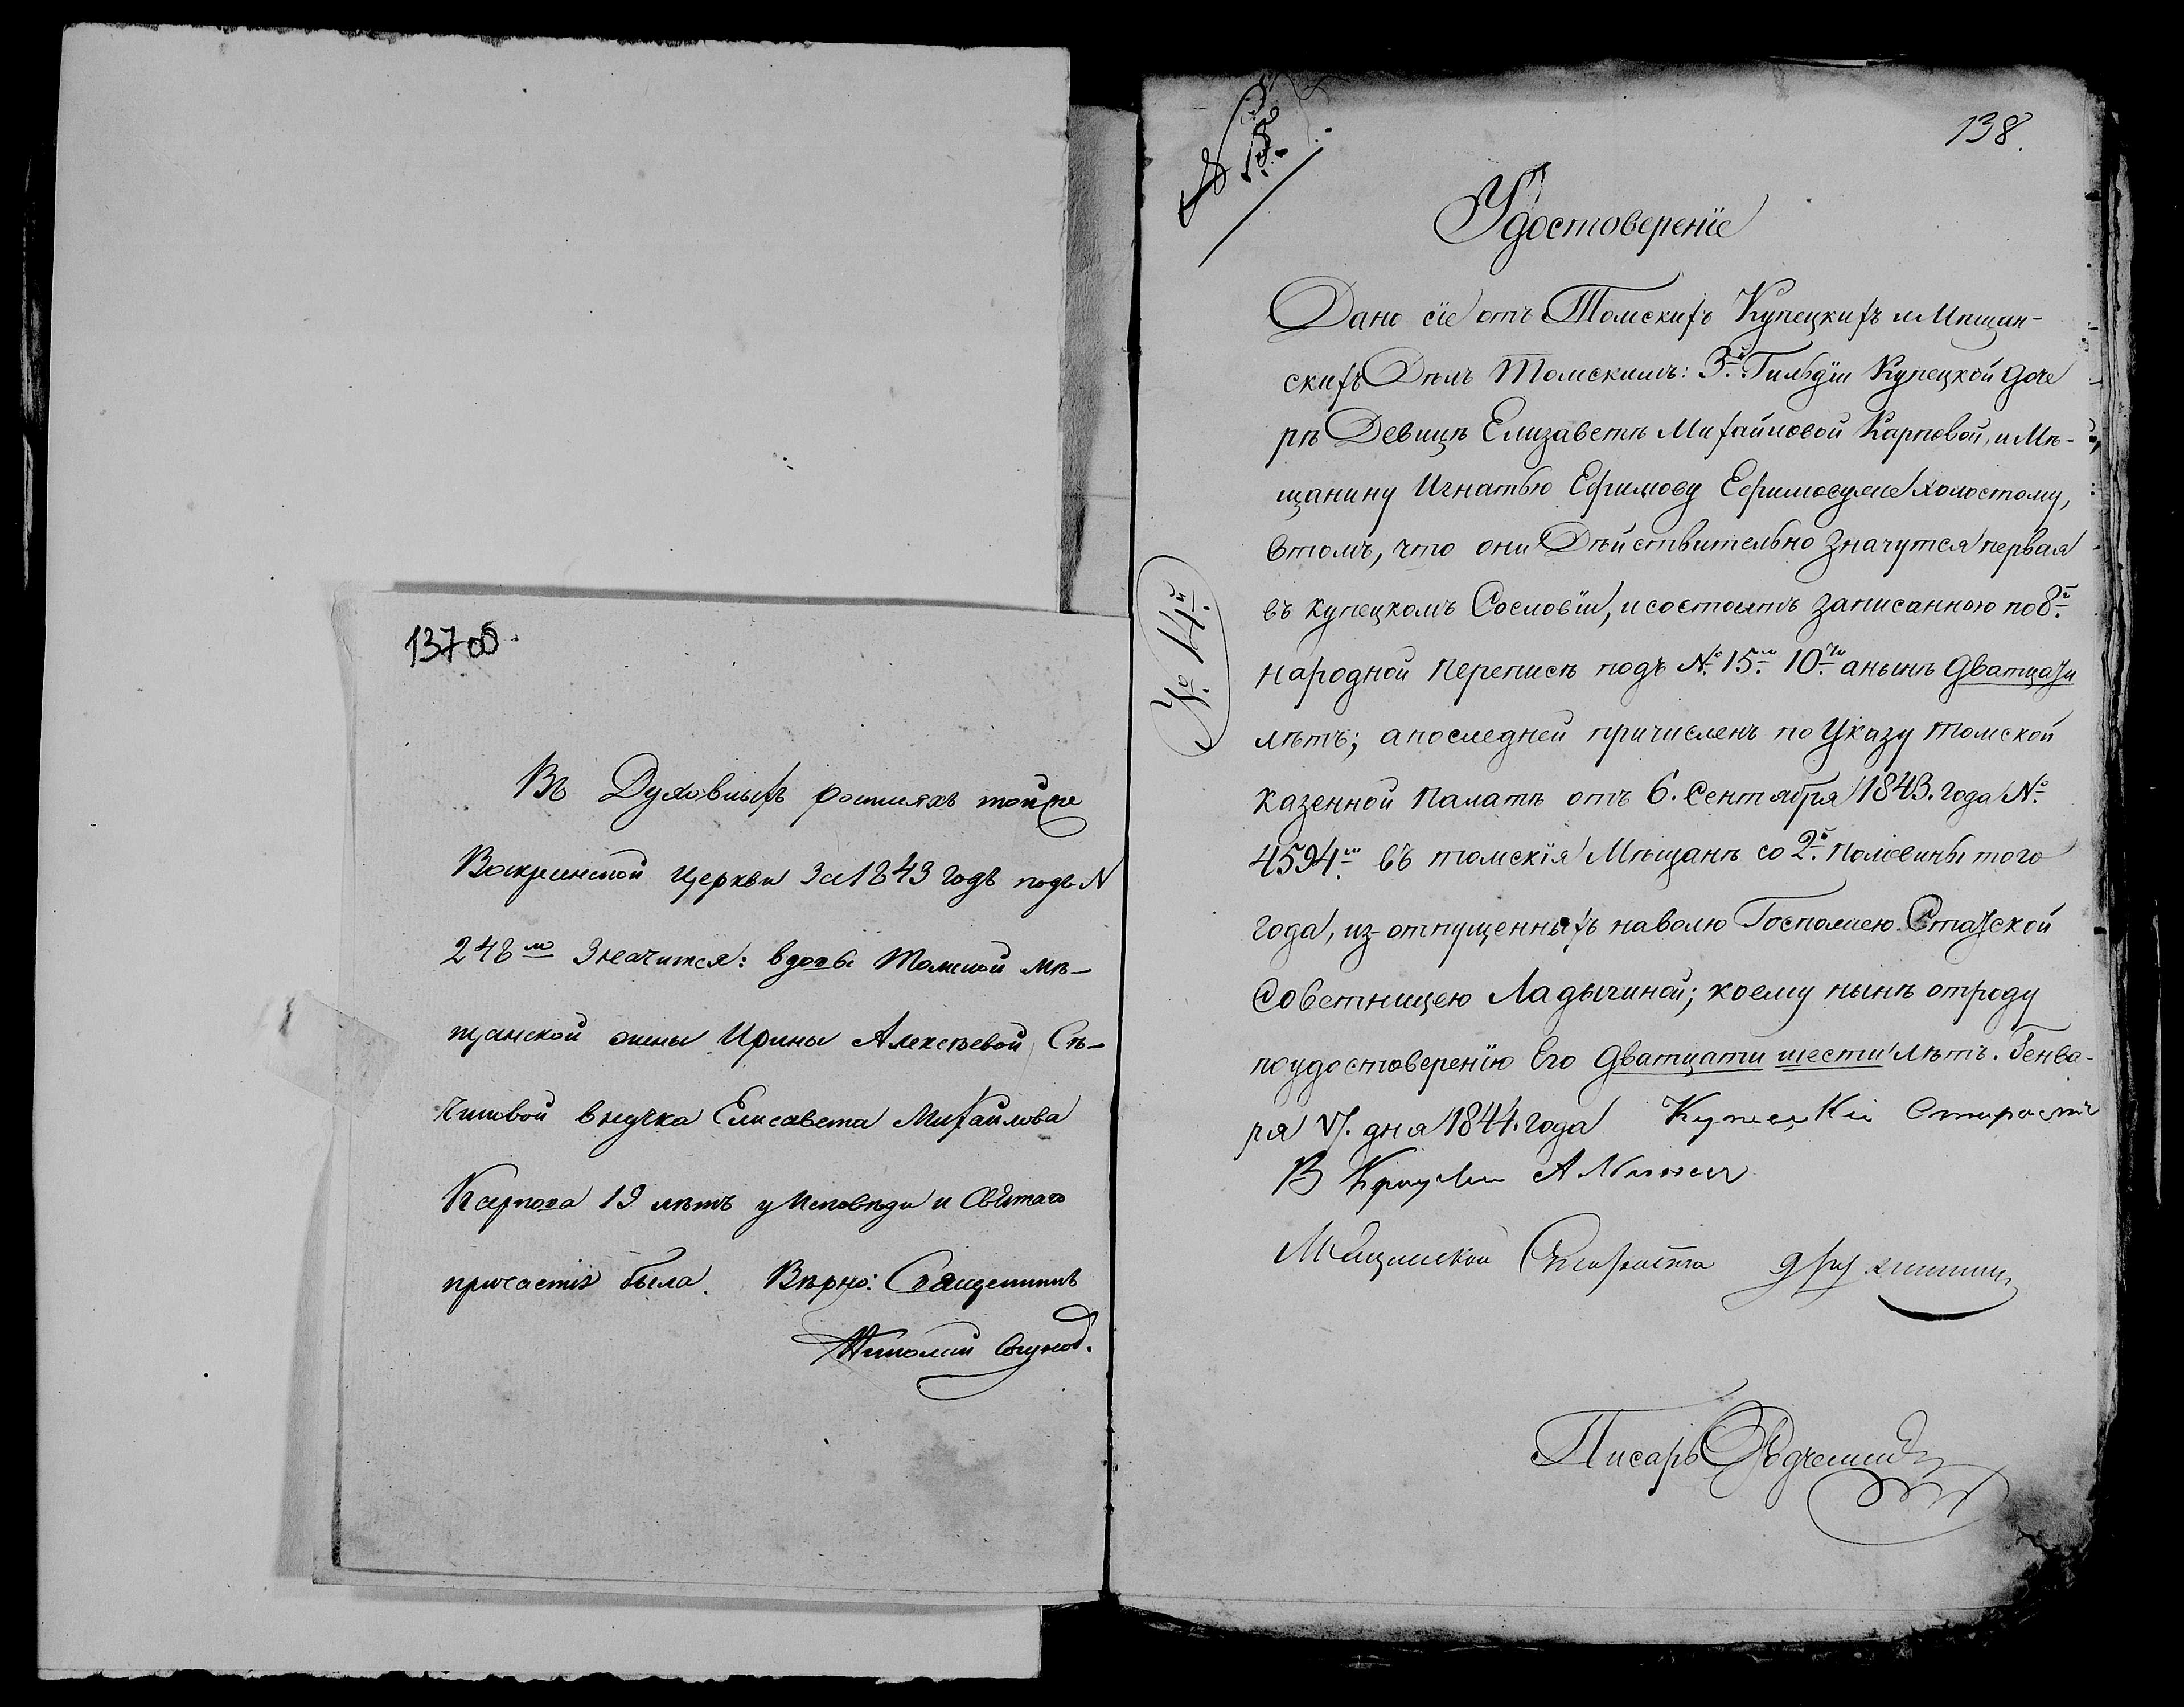 137 об.
Въ Духовныхъ росписяхъ тойже
Воскресенской Церкви За 1843 годъ подъ N
248мъ Значится: вдовы Томской мѣ-
щанской жены Ирины Алексѣевой Съ-
внучка Елисавета Михайлова
Карпова 19 лѣтъ у Исповѣди и Святаго
причастія была. Вѣрно: Священникъ
Николай
138.
№ 15.
Удостоверенїе
Дано сїе отъ Томскихъ Купецкихъ и Мѣщан-
скихъ Дѣлъ Томскимъ: 3й Гильдїи Купецкой доче
рѣ Девицѣ Елизаветѣ Михайловой Карповой, и Мѣ-
щанину Игнатью Ефимову Ефимову же холостому,
втомъ, что они Дѣйствительно значутся первая
въ купецкомъ Сословїи, и состоитъ записанною по 8й
народной переписѣ подъ №. 15м 10ти анынѣ дватцати
лѣтъ; а последней причисленъ по Указу томской
казенной палатѣ отъ 6. Сентября 1843. года №.
4594м въ томскїя Мѣщанѣ со 2й половины того
года, из отпущенныхъ наволю Госпожею Статской
Советницею Ладычиной; коему нынѣ отроду
поудостоверенїю Его дватцати шести лѣтъ. Генва-
ря 17. дня 1844. года Купецкiй Старостъ
В
Мещанской Староста
Писарь
№. 14й